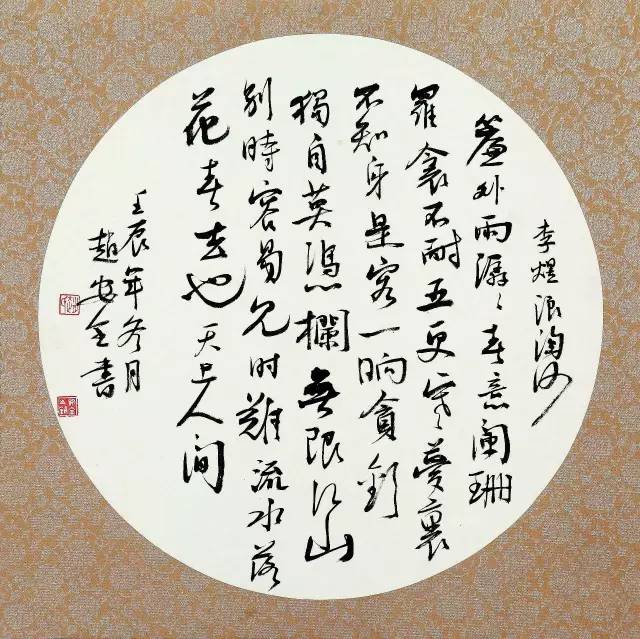 李煜浪淘沙
簾外雨潺々春意闌珊
羅衾不耐五更寒夢裏
不知身是客一晌貪歡
獨自莫憑欄無限江山
別時容易見时難流水落
花春去也天上人间
壬辰年冬月
趙安全書